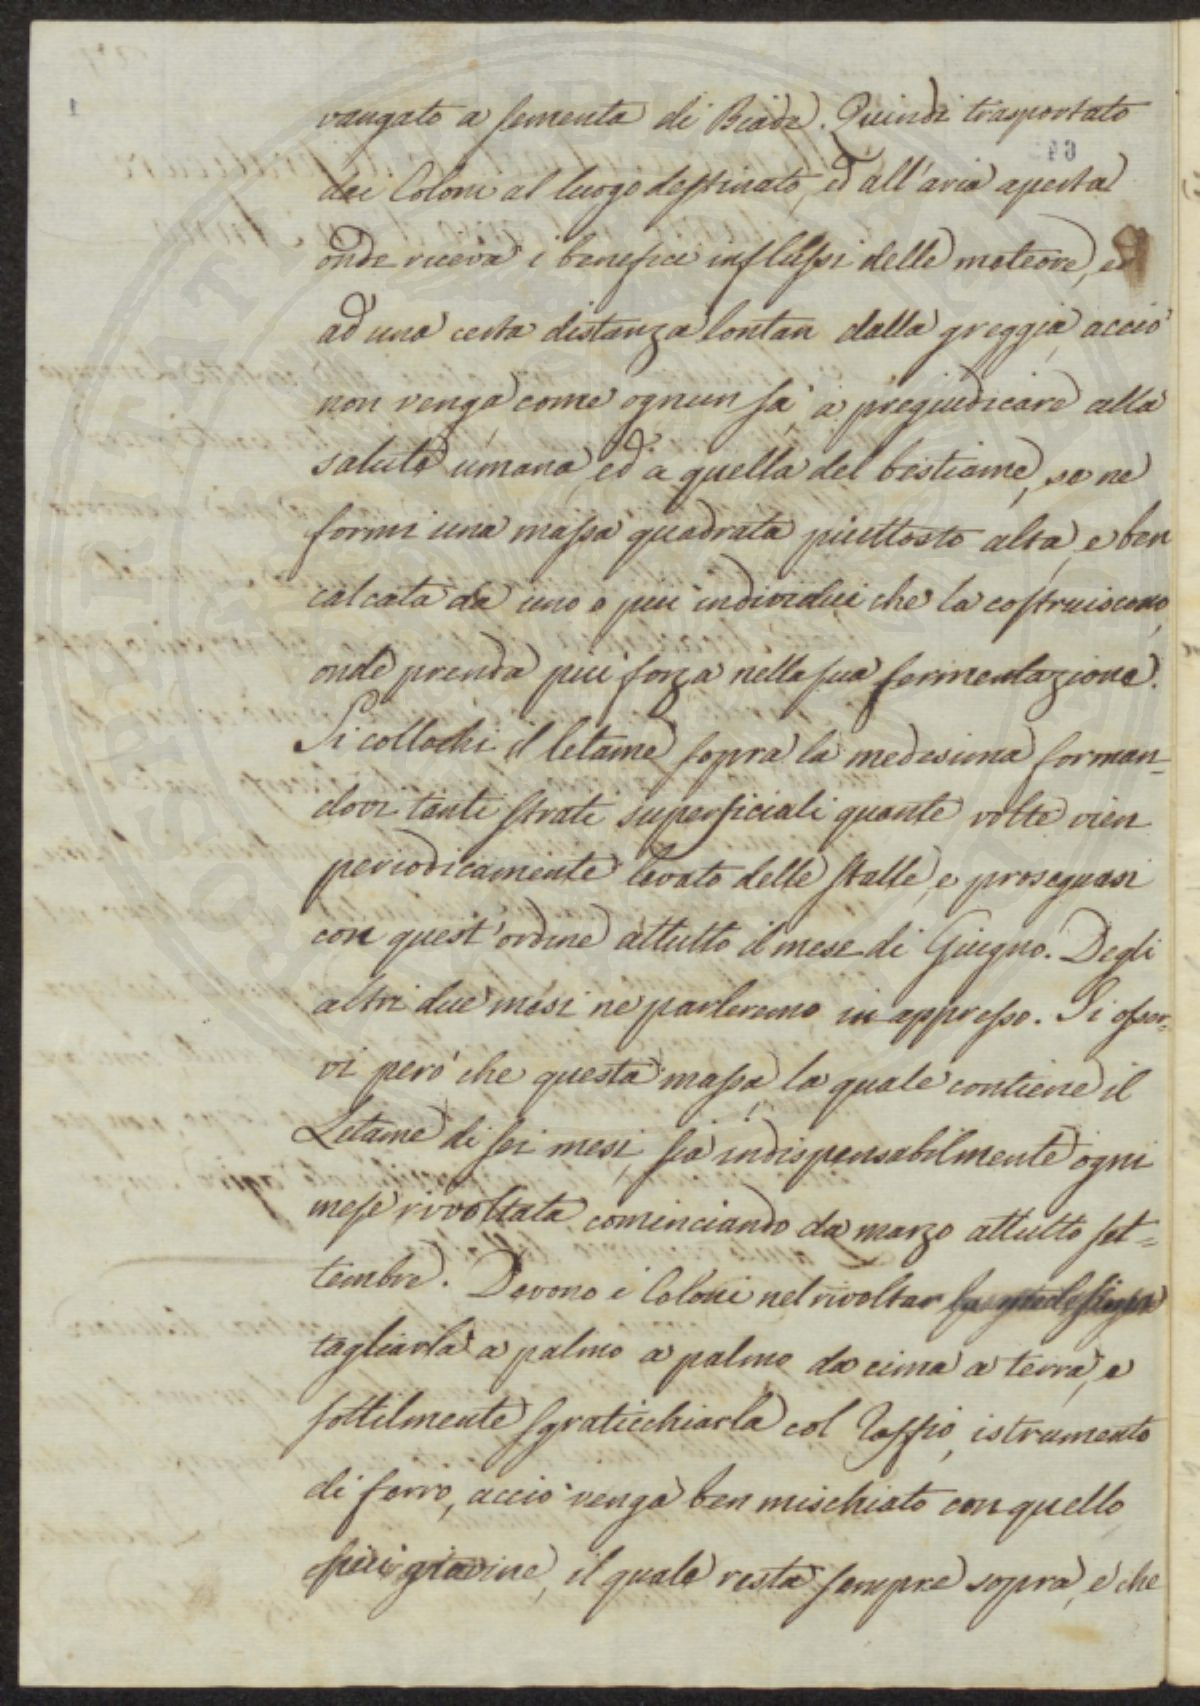 vangato a sementa di Biade. Quindi trasportato
dai Coloni al luogo destinato, ed all'aria aperta
onde riceva i benefici influssi delle meteore, ed
ad una certa distanza lontan dalla greggia, acciò
non venga, come ognun sà, a pregiudicare alla
salute umana, ed a quella del bestiame, se ne
formi una massa quadrata piuttosto alta, e ben
calcata da uno o piu individui che la costruiscono,
onde prenda piu forza nella sua fermentazione.
Si collochi il letame sopra la medesima forman=
dovi tanti strati superficiali quante volte vien
periodicamente levato delle stalle, e proseguasi
con quest'ordine attutto il mese di Giugno. Degli
altri due mesi ne parleremo in appresso. Si osser=
vi però che questa massa, la quale contiene il
Letame di sei mesi, sia indispensabilmente ogni
mese rivoltata cominciando da marzo attutto set=
tembre. Devono i Coloni nel rivoltar
tagliarla a palmo a palmo da cima a terra, e
sottilmente sgraticchiarla col Zappio, istrumento
di ferro, acciò venga ben mischiato con quello
più giovine, il quale resta sempre sopra, e che